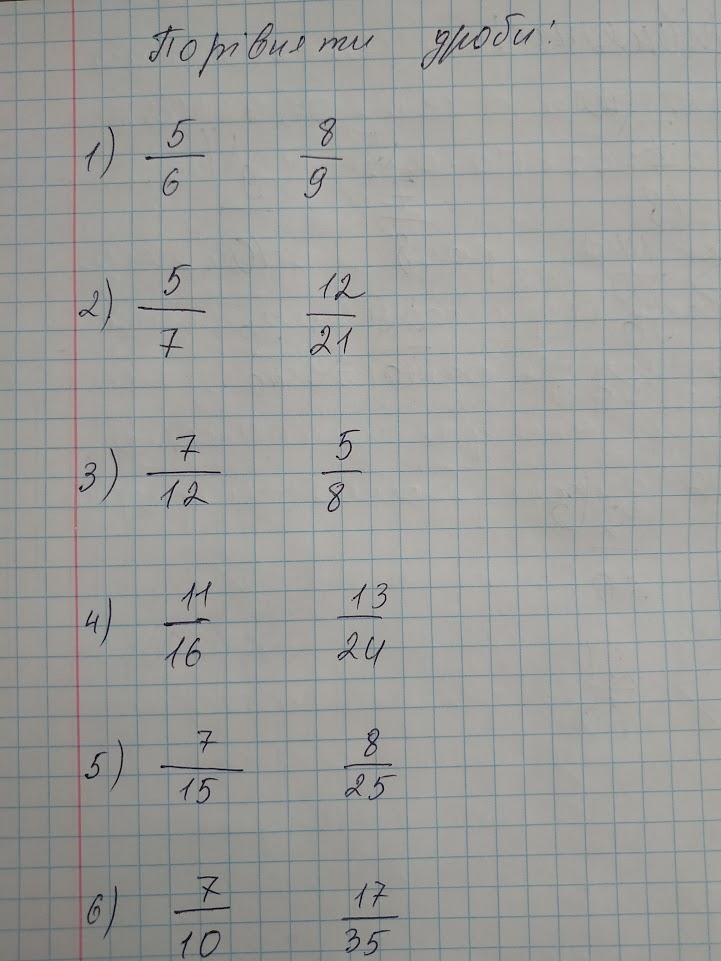 Порівняти дроби:
1) 5/6 8/9
2) 5/7 12/21
3) 7/12 5/8
4) 11/16 13/24
5) 7/15 8/25
6) 7/10 17/35